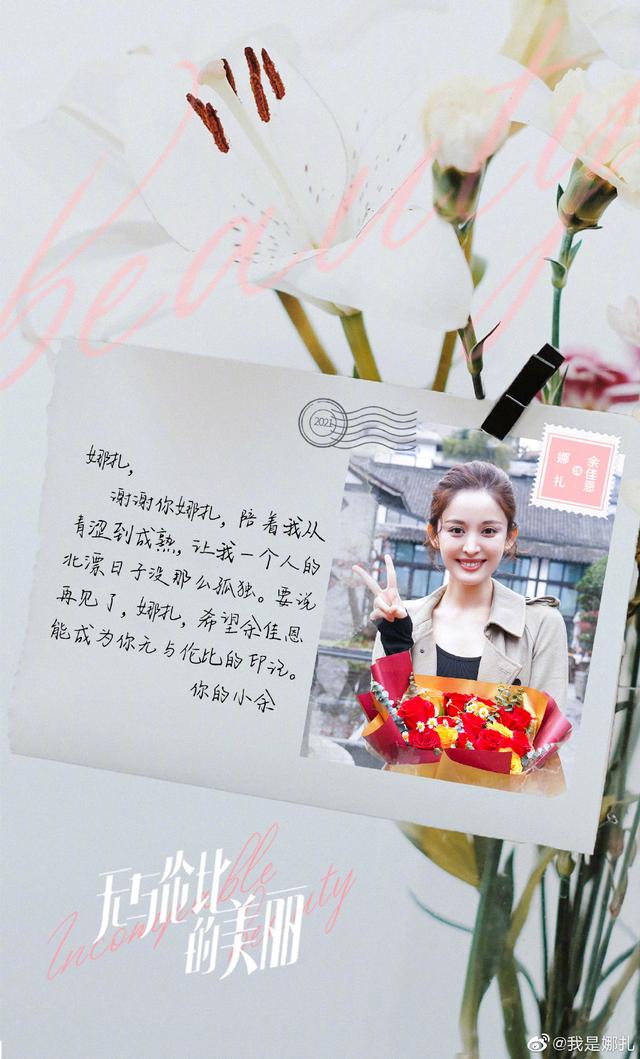 Beauty
2021
娜扎
饰
余佳恩
娜扎，
谢谢你娜扎，陪着我从
青涩到成熟，让我一个人的
北漂日子没那么孤独。要说
再见了，娜扎，希望余佳恩
能成为你无与伦比的印记。
你的小余
无与伦比
的美丽
Incomparable
beauty
@我是娜扎